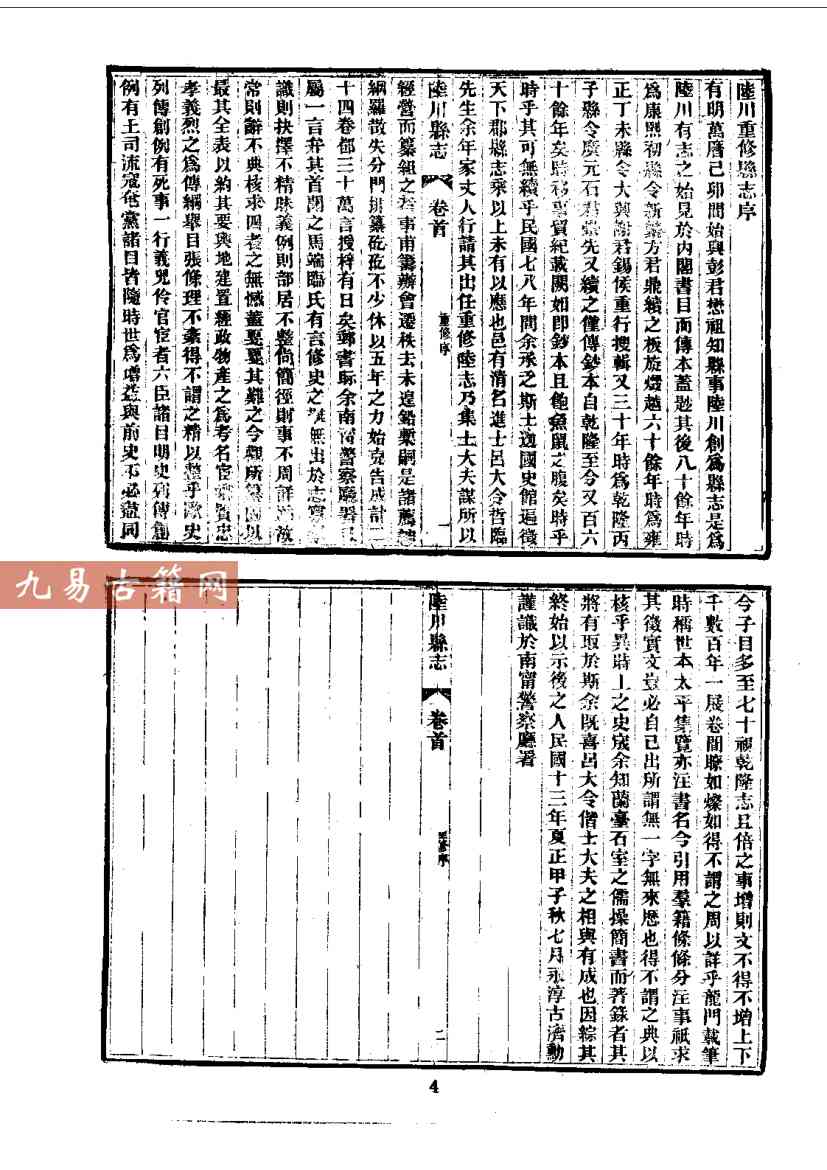 陸川重修縣志序
有明萬曆己卯間始興彭君懋祖知縣事陸川創爲縣志是爲
陸川有志之始見於內閣書目而傳本蓋尠其後八十餘年時
爲康熙初縣令新蔡方君鼎續之板旋燬越六十餘年時爲雍
正丁未縣令大興謝君錫侯重行搜輯又三十年時爲乾隆丙
子縣令廣元石君崇先又續之僅傳鈔本自乾隆至今又百六
十餘年矣時移事貿紀載闕如即鈔本且飽魚鼠之腹矣時乎
時乎其可無續乎民國七八年間余承乏斯土迦國史館遍徵
天下郡縣志乘以上未有以應也邑有清名進士呂大令哲臨
先生余年家丈人行請其出任重修陸志乃集士大夫謀所以
陸川縣志
卷首
重修序
一
經營而纂組之者事甫籌辦會遷秩去未遑鉛槧嗣是諸薦紳
網羅散失分門排纂矻矻不少休以五年之力始克告成計二
十四卷都三十萬言授梓有日矣郵書眎余南甯警察廳署
屬一言弁其首聞之馬端臨氏有言修史之難無出於志
識則抉擇不精昧義例則部居不整尚簡徑則事不周詳
常則辭不典核求四者之無憾蓋戛戛其難之今觀所纂以
最其全表以約其要輿地建置經政物產之爲考名宦鄉賢忠
孝義烈之爲傳綱舉目張條理不紊得不謂之精以整乎歐史
列傳創例有死事一行義兒伶官宦者六臣諸目明史列傳創
例有土司流寇奄黨諸目皆隨時世爲增益與前史不必盡同
今子目多至七十視乾隆志且倍之事增則文不得不增上下
千數百年一展卷間瞭如燦如得不謂之周以詳乎龍門載筆
時稱世本太平集覽亦注書名今引用羣籍條條分注事祇求
其徵實文豈必自己出所謂無一字無來歷也得不謂之典以
核乎異時上之史宬余知蘭臺石室之儒操簡書而著錄者其
將有取於斯余既喜呂大令偕士大夫之相與有成也因綜其
終始以示後之人民國十三年夏正甲子秋七月永淳古濟勳
謹識於南甯警察廳署
陸川縣志
卷首
重修序
二
九易古籍网
4